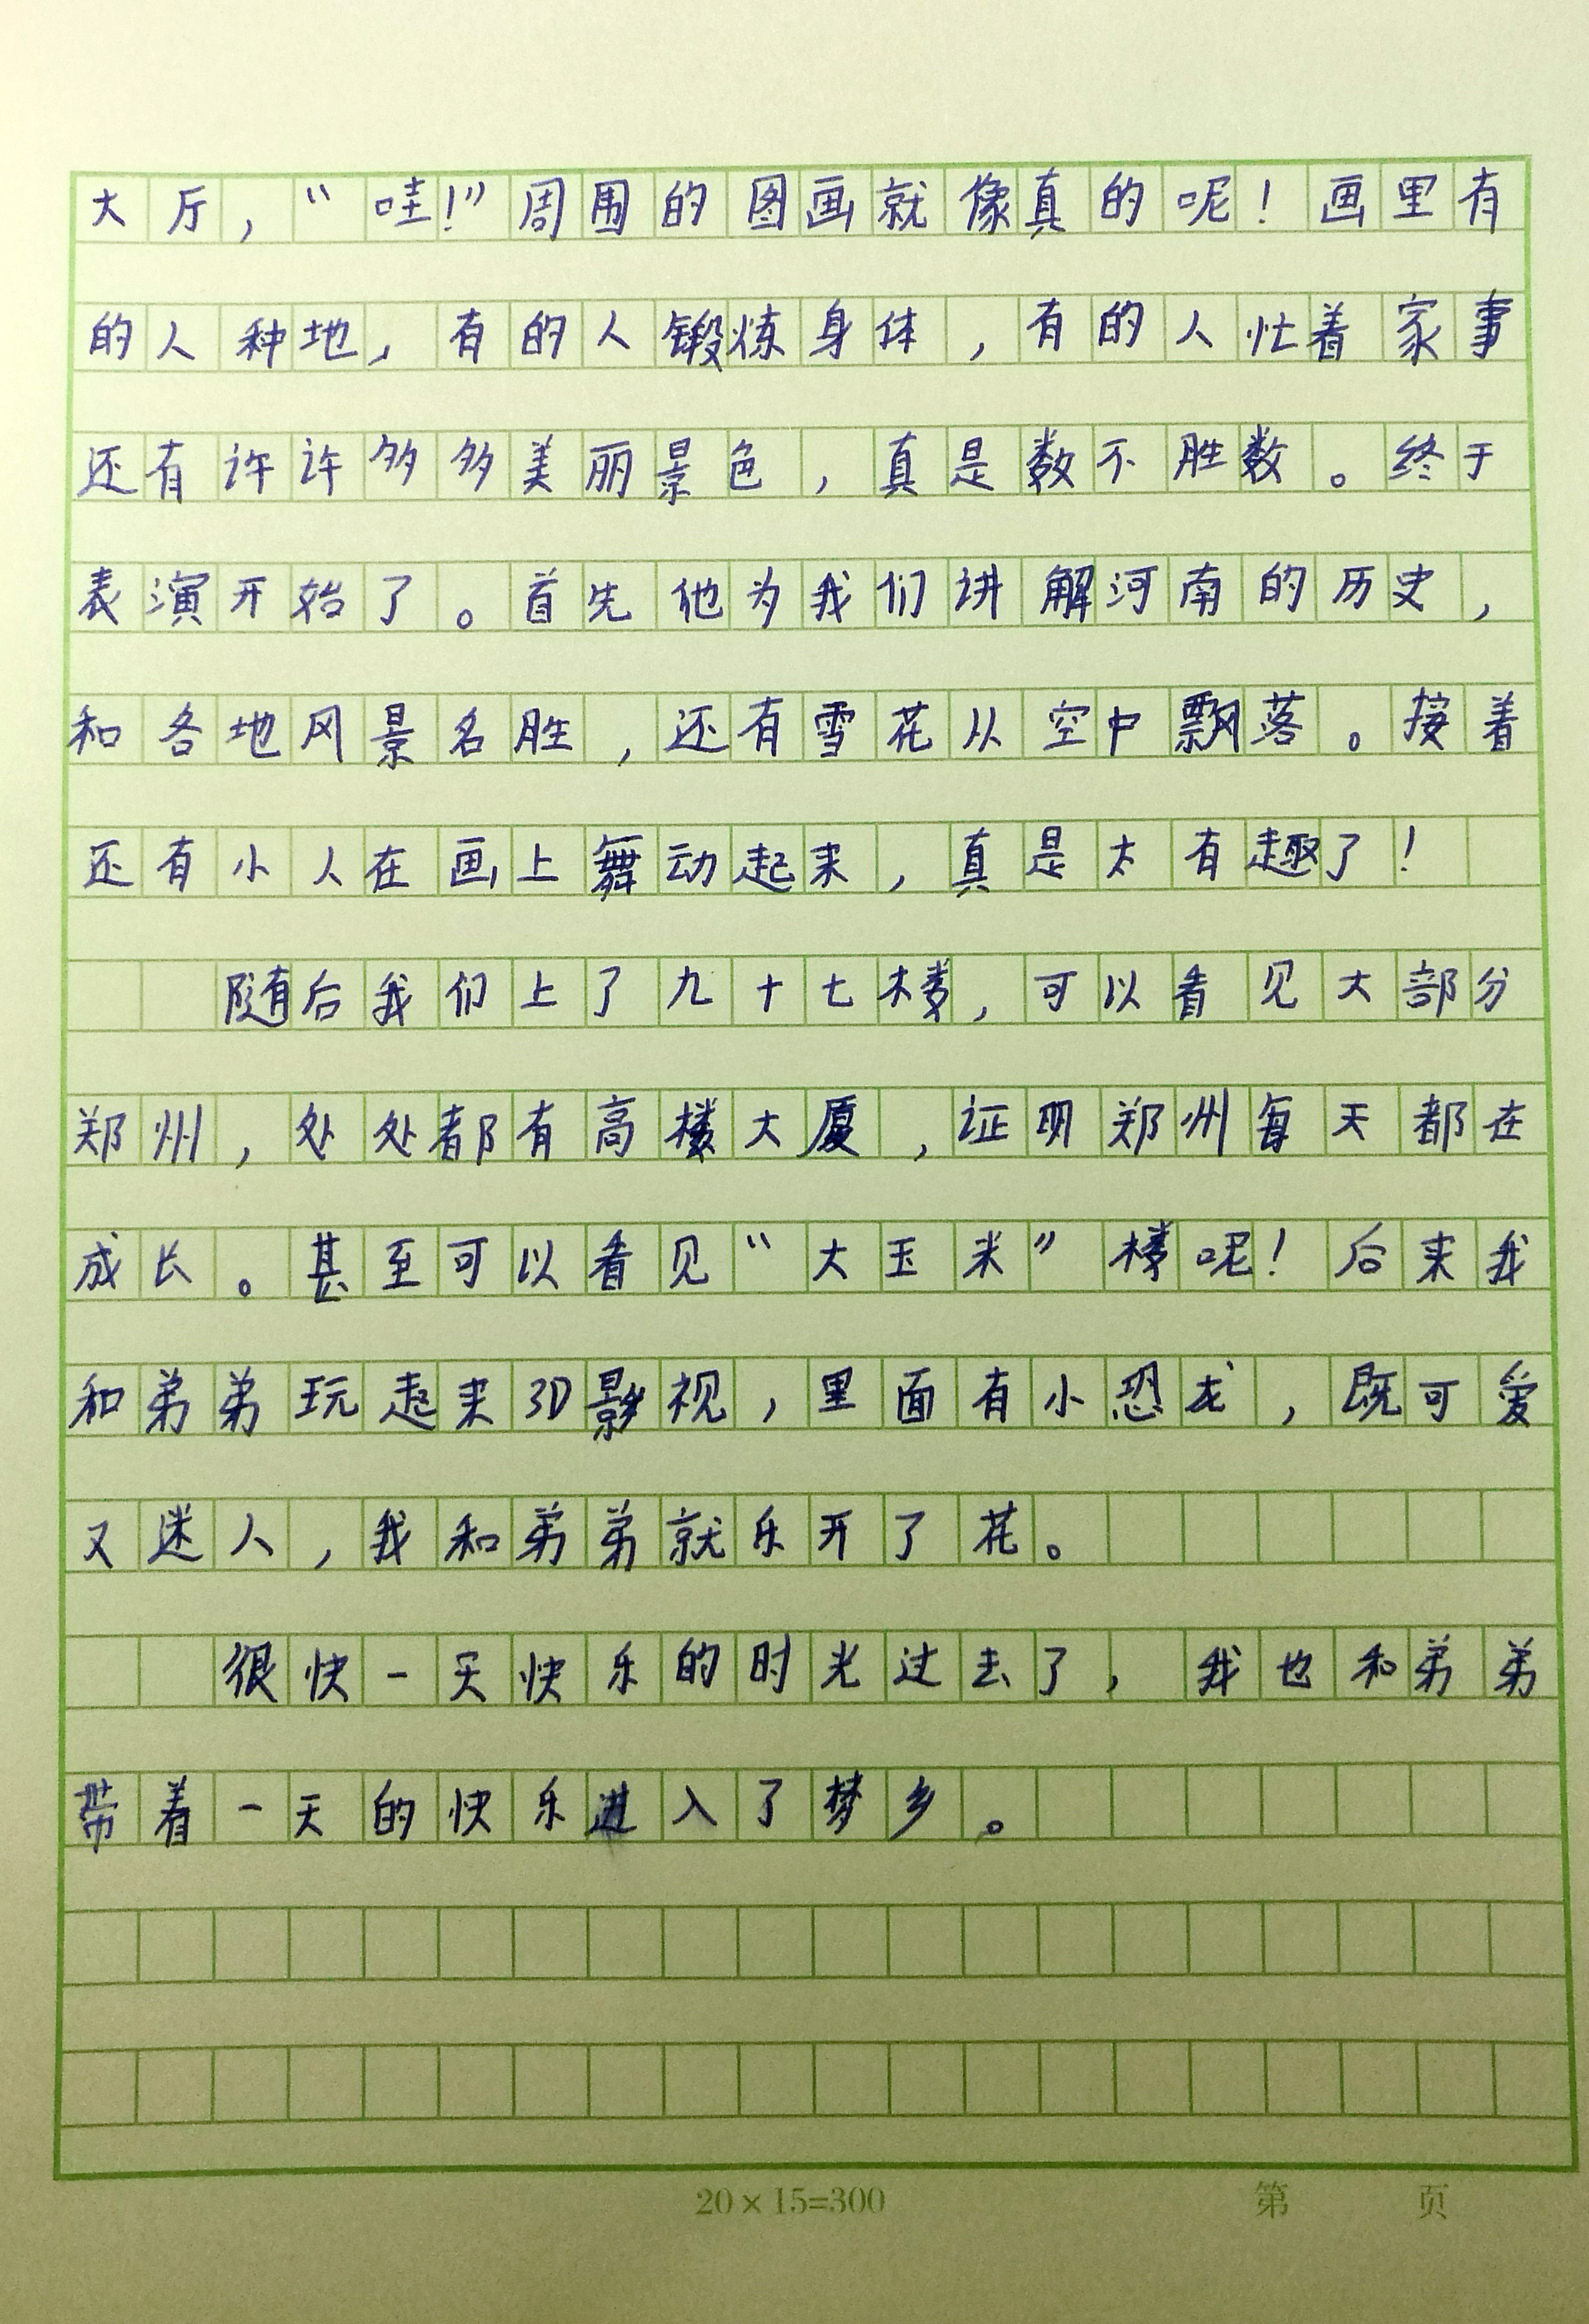 大厅，“哇！”周围的图画就像真的呢！画里有
的人种地，有的人锻炼身体，有的人忙着家事
还有许许多多美丽景色，真是数不胜数。终于
表演开始了。首先他为我们讲解河南的历史，
和各地风景名胜，还有雪花从空中飘落。接着
还有小人在画上舞动起来，真是太有趣了！
随后我们上了九十七楼，可以看见大部分
郑州，处处都有高楼大厦，证明郑州每天都在
成长。甚至可以看见“大玉米”楼呢！后来我
和弟弟玩起来3D影视，里面有小恐龙，既可爱
又迷人，我和弟弟就乐开了花。
很快一天快乐的时光过去了，我也和弟弟
带着一天的快乐进入了梦乡。
20×15=300 第 页